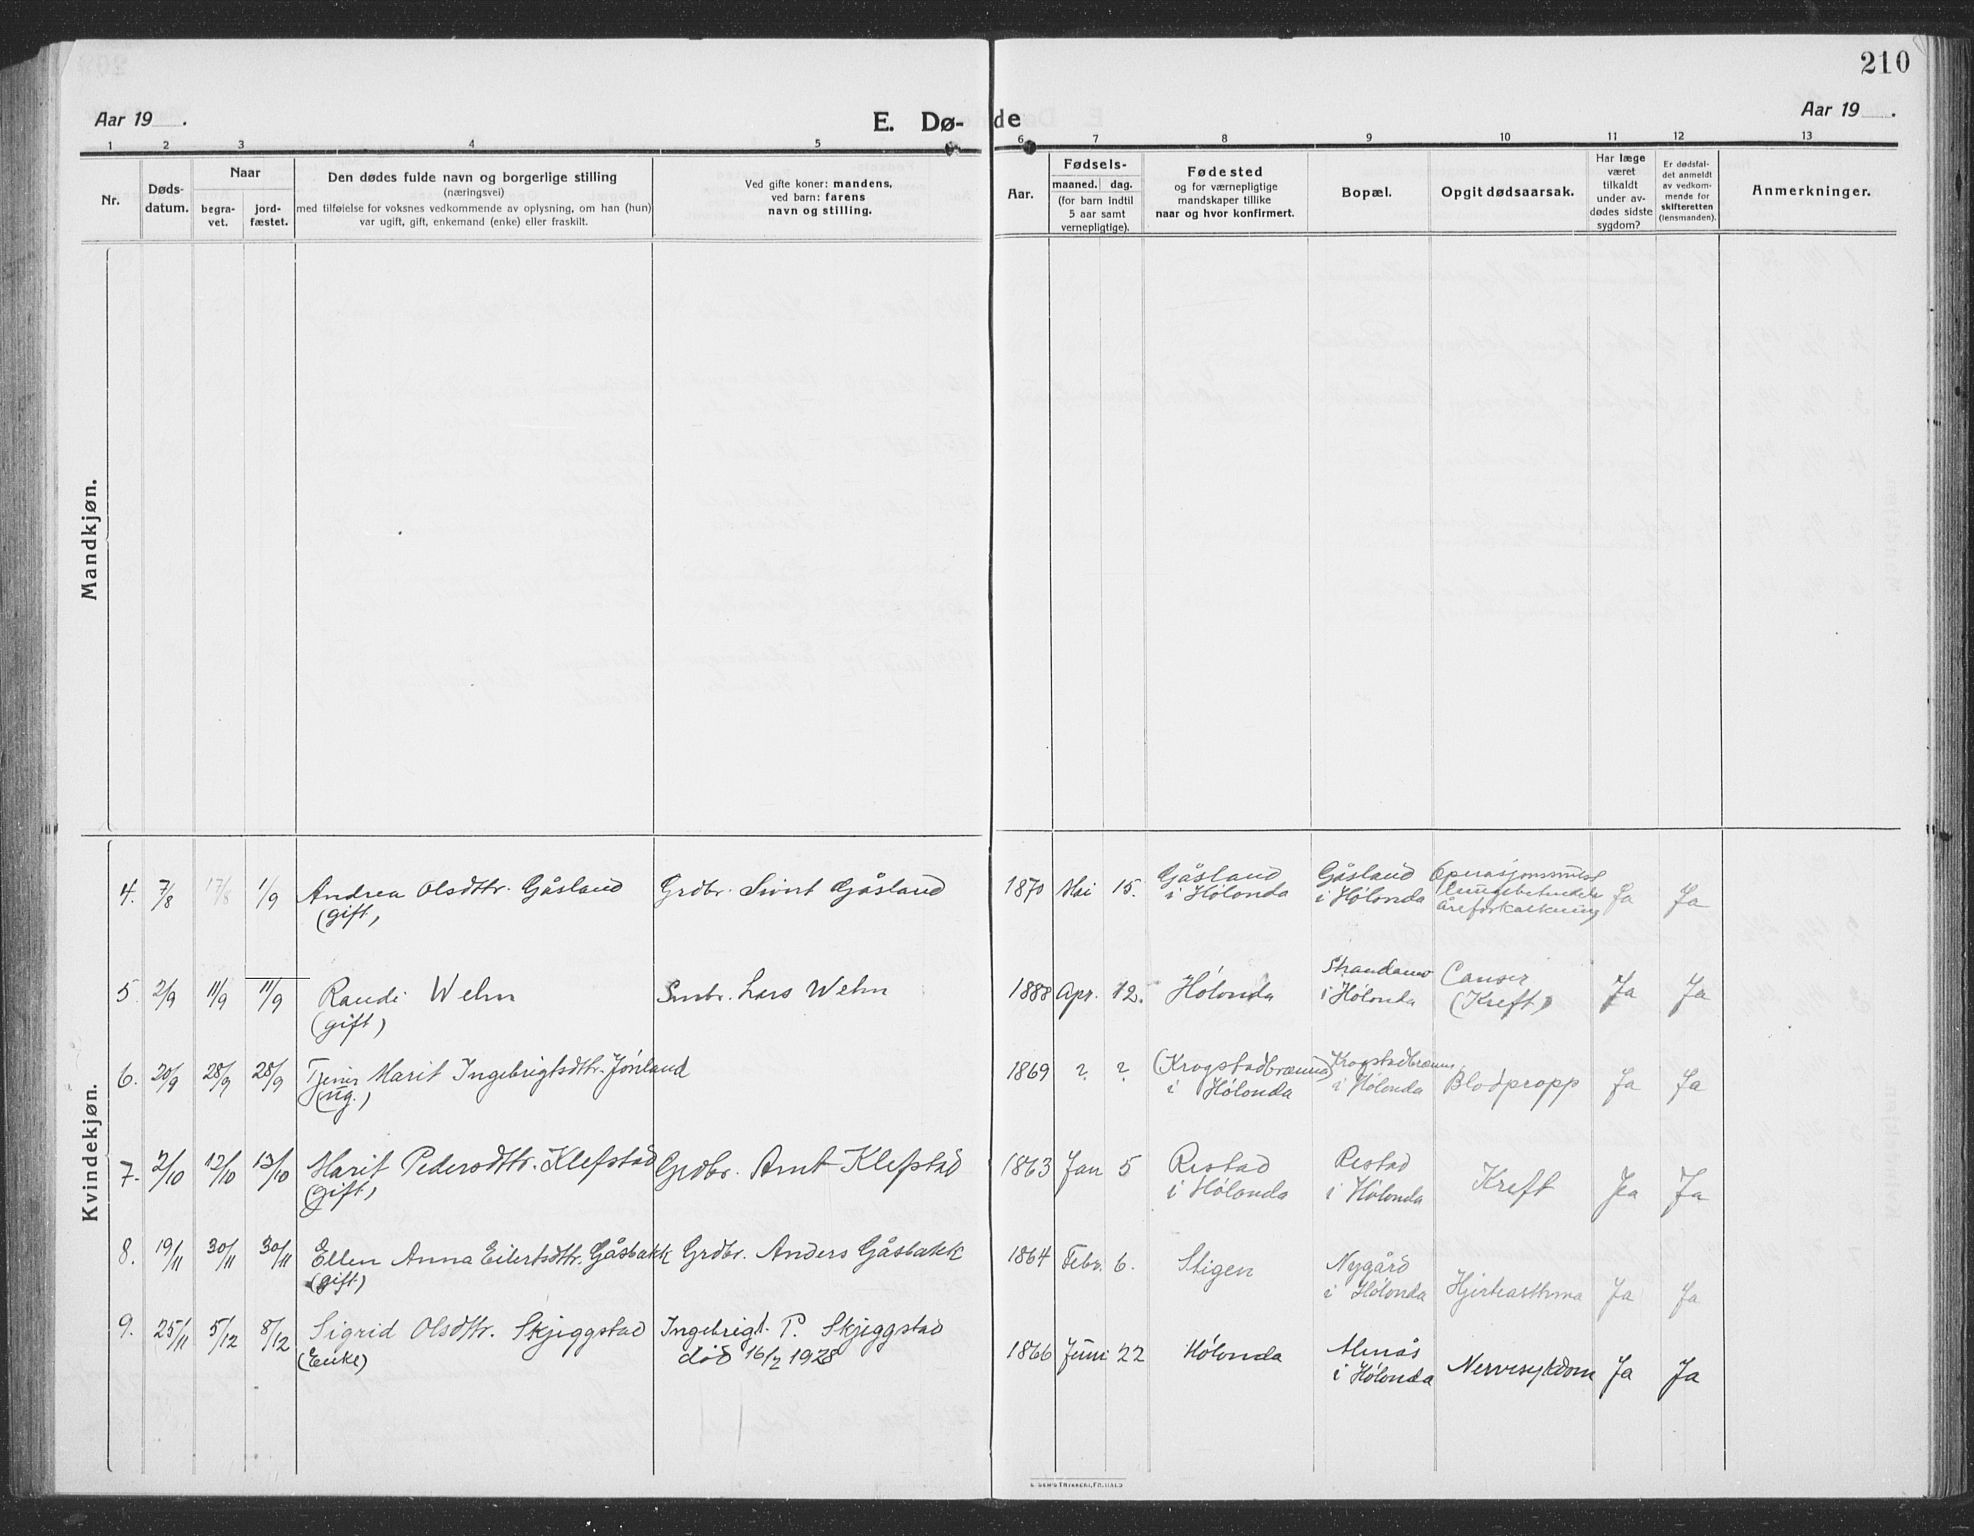 210
Aar 19 .
E. Dø- de
Aar 19 .
1 2 3 4 5 6 7 8 9 10 11 12 13
Nr.
Døds-
datum.
Naar
begra-
vet.
jord-
fæstet.
Den dødes fulde navn og borgerlige stilling
(næringsvei)
med tilføielse for voksnes vedkommende av oplysning, om han (hun)
var ugift, gift, enkemand (enke) eller fraskilt.
Ved gifte koner: mandens,
ved barn: farens
navn og stilling.
Aar.
Fødsels-
maaned. dag.
(for barn indtil
5 aar samt
vernepligtige).
Fødested
og for værnepligtige
mandskaper tillike
naar og hvor konfirmert.
Bopæl.
Opgit dødsaarsak.
Har læge
været
tilkaldt
under av-
dødes sidste
sygdom?
Er dødsfal-
det anmeldt
av vedkom-
mende for
skifteretten
(lensmanden).
Anmerkninger.
Mandkjøn.
Kvindekjøn.
4. 7/8 17/8 1/9 Andrea Olsdttr. Gåsland Grdbr. Sivert Gåsland 1870 Mai 15. Gåsland Gåsland
(gift) i Hølonda i Hølonda åreforkalkning) Ja Ja
5. 2/9 11/9 11/9 Randi Wehn Smbr. Lars Wehn 1888 Apr. 12. Hølonda i Hølonda Canser
(gift) (Kreft) Ja Ja
6. 20/9 28/9 28/9 Tjener Marit Ingebrigtsdttr. Jønland 1869 ? ? (Krogstadbrænna) Krogstadbrænna Blodpropp Ja Ja
(ug.) i Hølonda i Hølonda
7. 2/10 12/10 13/10 Marit Pedersdttr. Klefstad Grdbr. Arnt Klefstad 1863 Jan 5 Restad Restad Kreft Ja Ja
(gift) i Hølonda i Hølonda
8. 19/11 30/11 30/11 Ellen Anna Eilertsdttr. Gåsbakk Grdbr. Anders Gåsbakk 1864 Febr. 6. Stigen Nygård
(gift) i Hølonda Hjerteasthma Ja Ja
9. 25/11 5/12 8/12 Sigrid Olsdttr. Skjeggstad Ingebrigt P. Skjeggstad 1866 Juni 22 Hølonda Almås Nervesykdom Ja Ja
(Enke) død 16/2 1928 i Hølonda